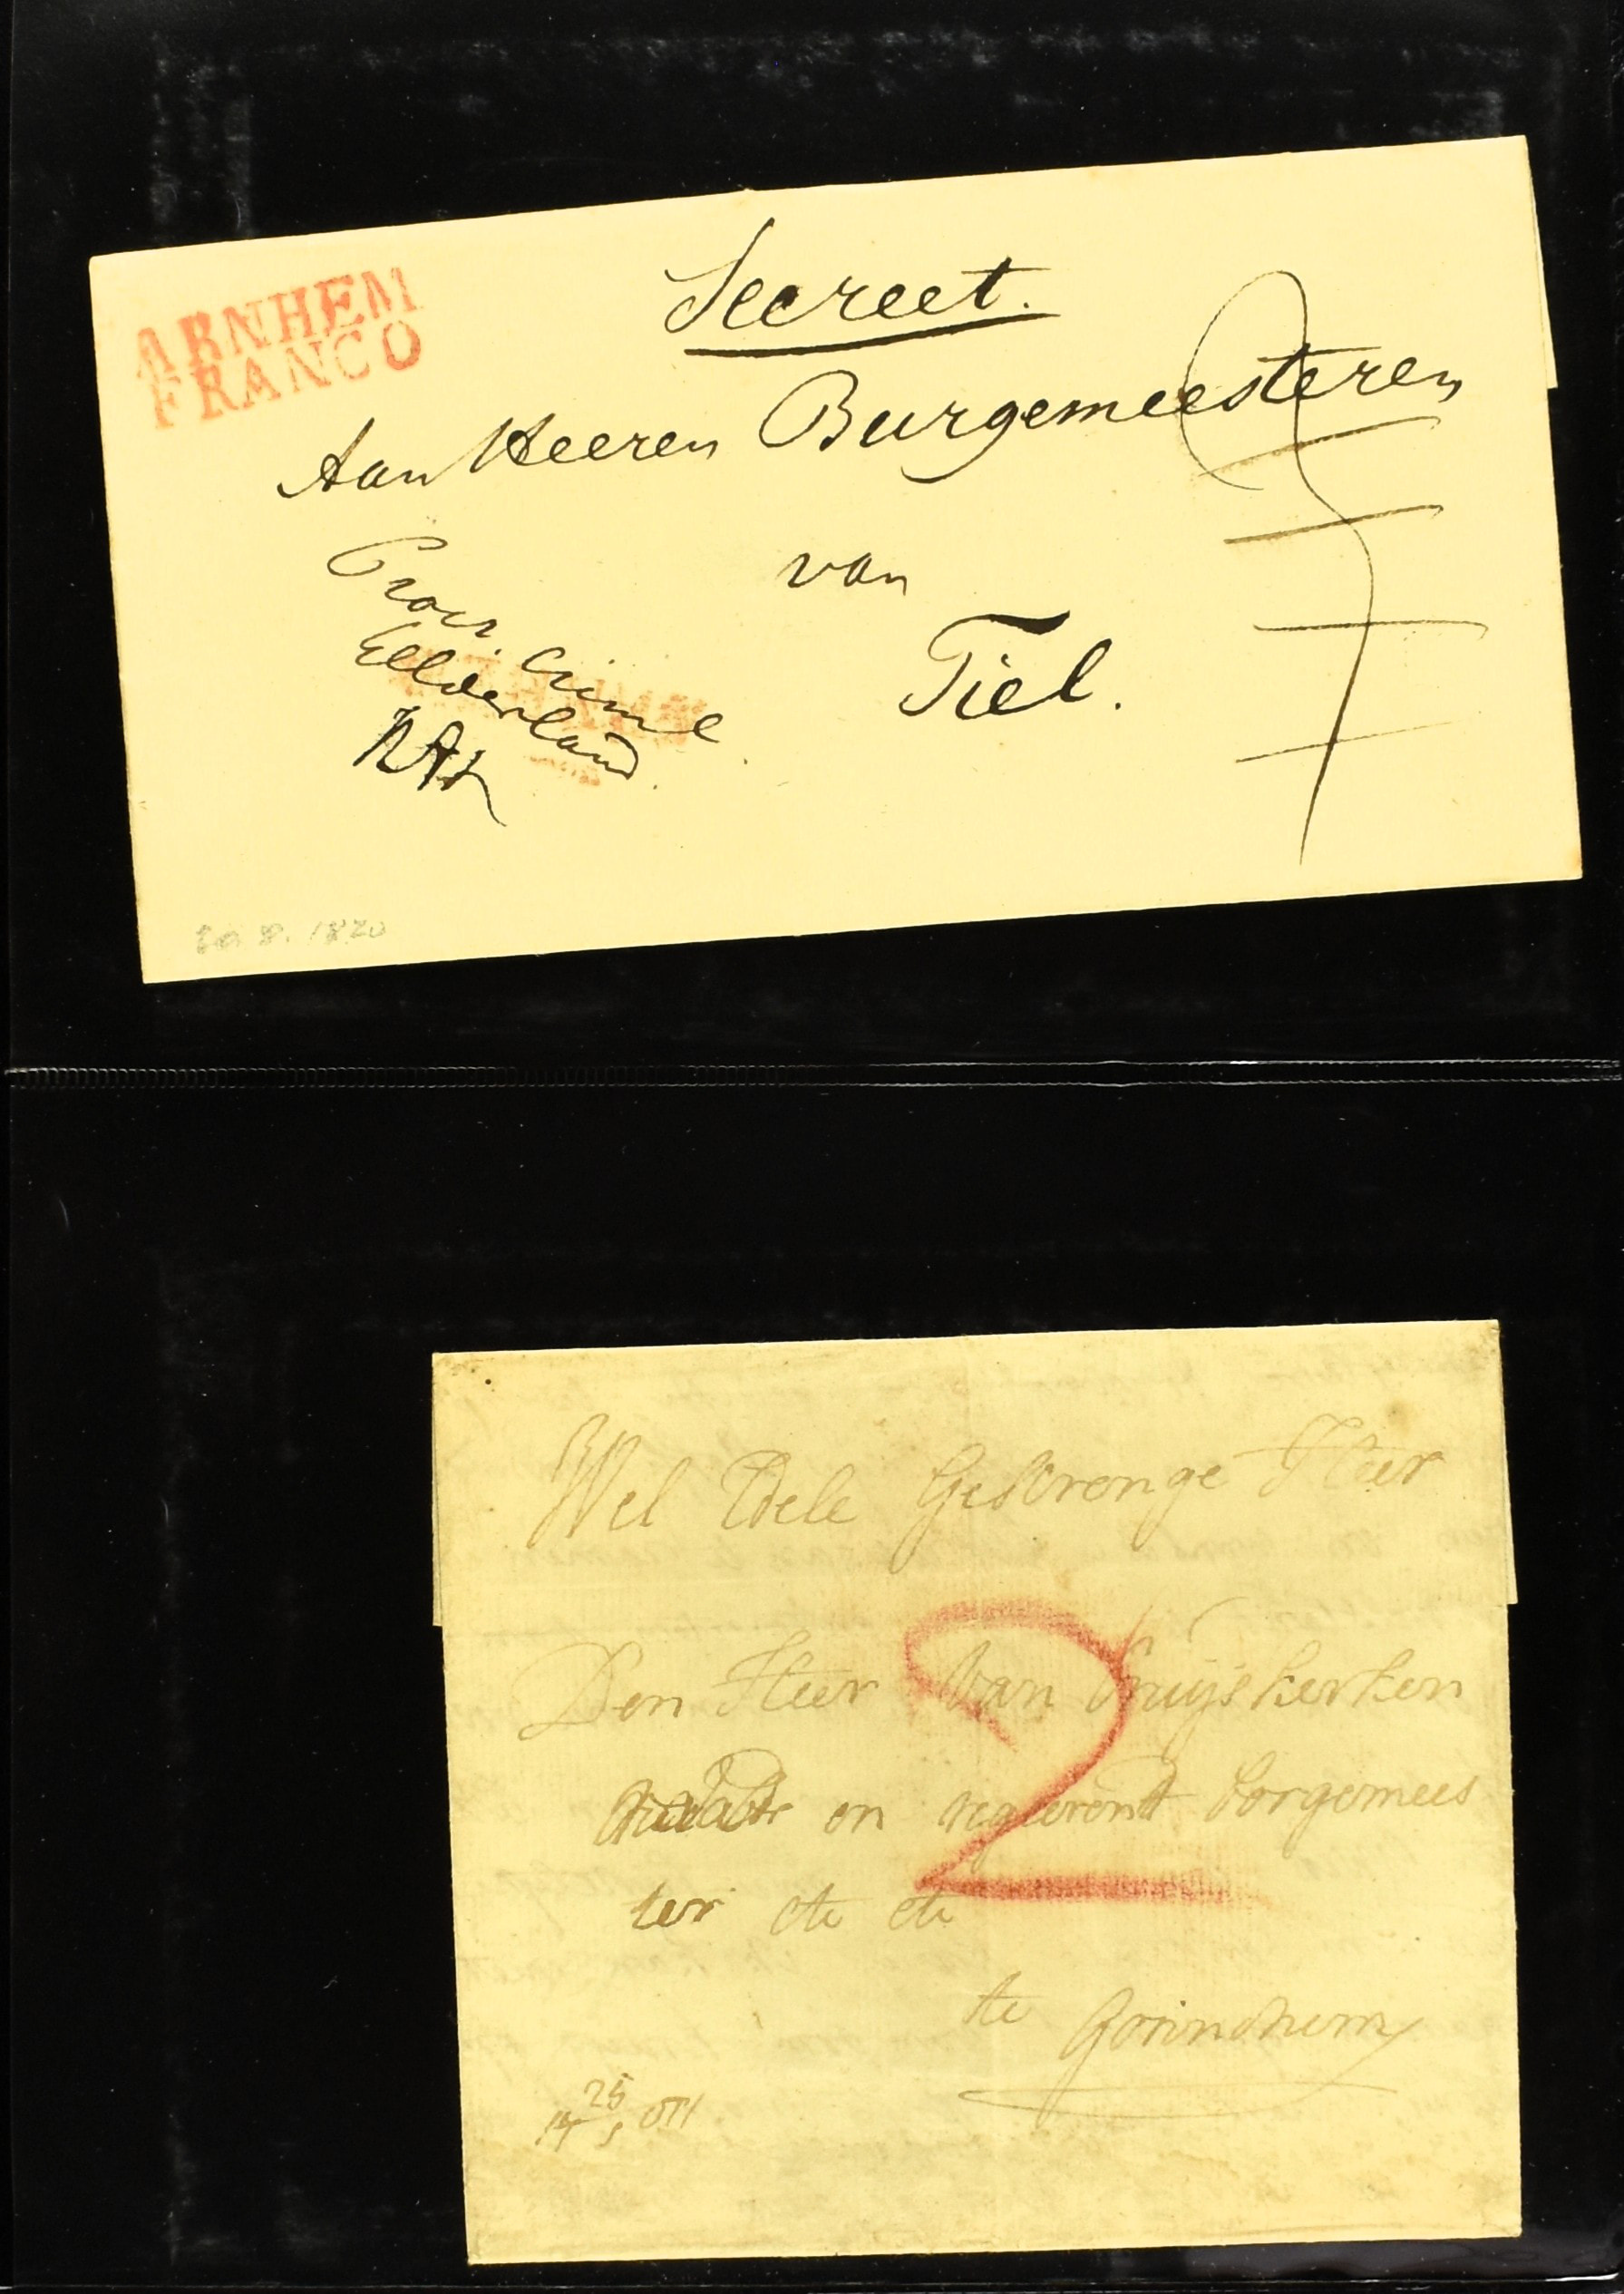 ARNHEM
FRANCO
Secreet.
Aan Heeren Burgemeesteren
van
Tiel.
Prov. Crime
Gelderland
8. 1820
Wel Edele Gestrenge Heer
Den Heer van Spuijskerken
en regerent borgemees
ter etc etc
te Gorinchem
25